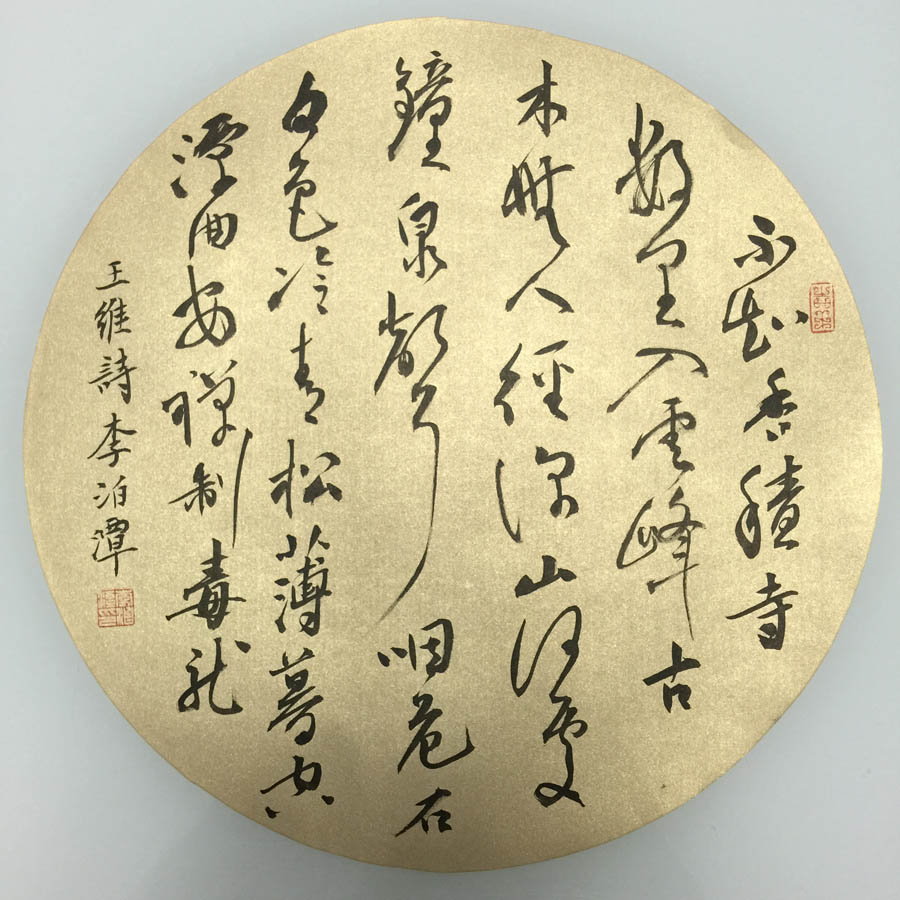 不知香積寺
數里入雲峰古
木無人徑深山何處
鐘泉聲咽危石
日色冷青松薄暮空
潭曲安禪制毒龍
王維詩李泊潭